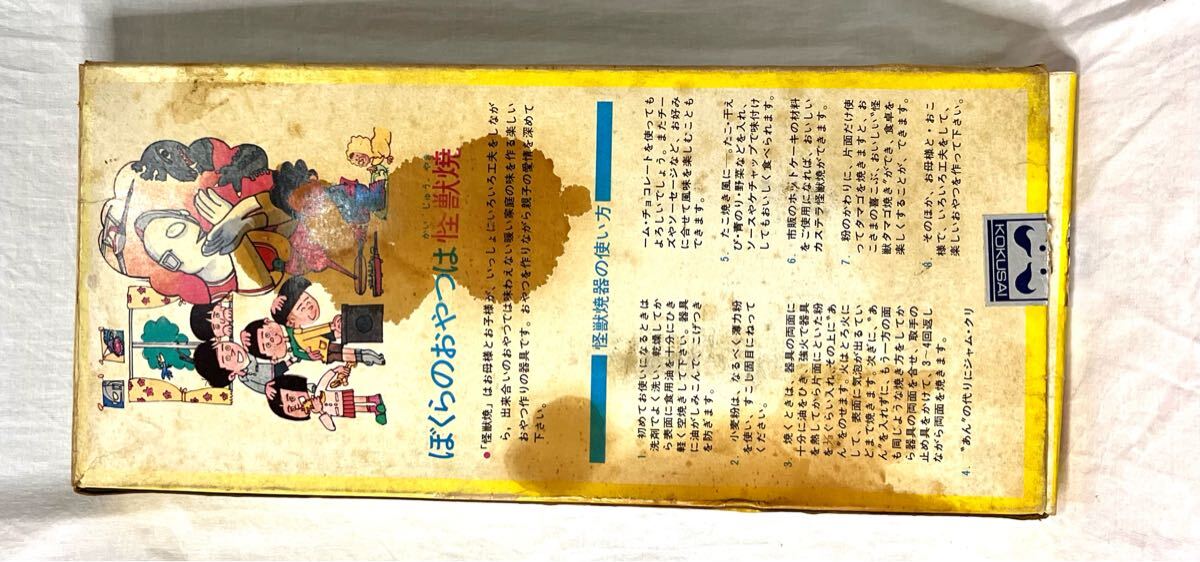 ぼくらのおやつは怪獣焼
かいじゅうやき
●「怪獣焼」はお母様とお子様が、いっしょにいろいろ工夫をしなが
ら，出来合いのおやつでは味わえない暖い家庭の味を作る楽しい
おやつ作りの器具です。おやつを作りながら親子の愛情を深めて
下さい。
怪獣焼器の使い方
1. 初めてお使いになるときは
洗剤でよく洗い、乾燥してか
ら表面に食用油を十分にひき
軽く空焼きして下さい。器具
に油がしみこんで、こげつき
を防ぎます。
2. 小麦粉は、なるべく薄力粉
を使い、すこし固目にねって
ください。
3. 焼くときは、器具の両面に
十分に油をひき、強火で器具
を熱してから片面にといた粉
を⅔ぐらい入れ、その上に"あ
ん"をのせます。火はとろ火に
して、表面に気泡が出るてい
どまで焼きます。次ぎに、"あ
ん"を入れずに、もう一方の面
も同じような焼き方をしてか
ら器具の両面を合せ、取手の
止め具をかけて、3～4回返し
ながら両面を焼きます。
4. "あん"の代りにジャム・クリ
ーム・チョコレートを使っても
よろしいでしょう。またチー
ズやソーセージなど、お好み
に合せて風味を楽しむことも
できます。
5. たこ焼き風に――たこ・干え
び・青のり・野菜などを入れ、
ソースやケチャップで味付け
してもおいしく食べられます。
6. 市販のホットケーキの材料
をご使用になれば、おいしい
カステラ怪獣焼ができます。
7. 粉のかわりに、片面だけ使
ってタマゴを焼きますと、お
こさまの喜こぶ、おいしい"怪
獣タマゴ焼き"ができ、食卓を
楽しくすることが、できます。
8. そのほか、お母様と・おこ
様で、いろいろ工夫をして、
楽しいおやつを作って下さい。
KOKUSAI